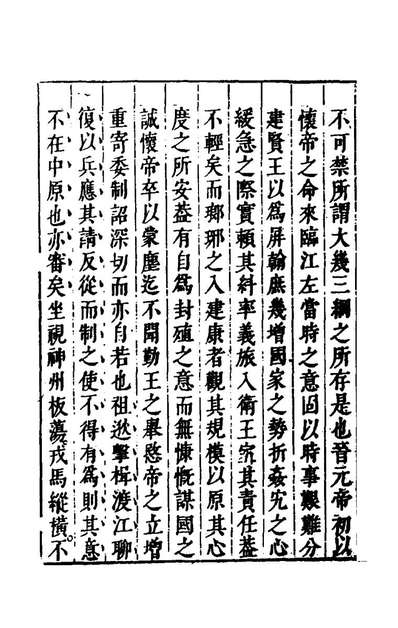 不可禁所謂大幾三綱之所存是也晉元帝初以
懷帝之命來臨江左當時之意固以時事艱難分
建賢王以爲屏翰庶幾增國家之勢折姦宄之心
緩急之際實賴其糾率義旅入衛王室其責任葢
不輕矣而瑯琊之入建康者觀其規模以原其心
度之所安葢有自爲封殖之意而無慷慨謀國之
誠懷帝卒以蒙塵迄不聞勤王之舉愍帝之立增
重寄委制詔深切而亦自若也祖逖擊楫渡江聊
復以兵應其請反從而制之使不得有爲則其意
不在中原也亦審矣坐視神州板蕩戎馬縱橫不